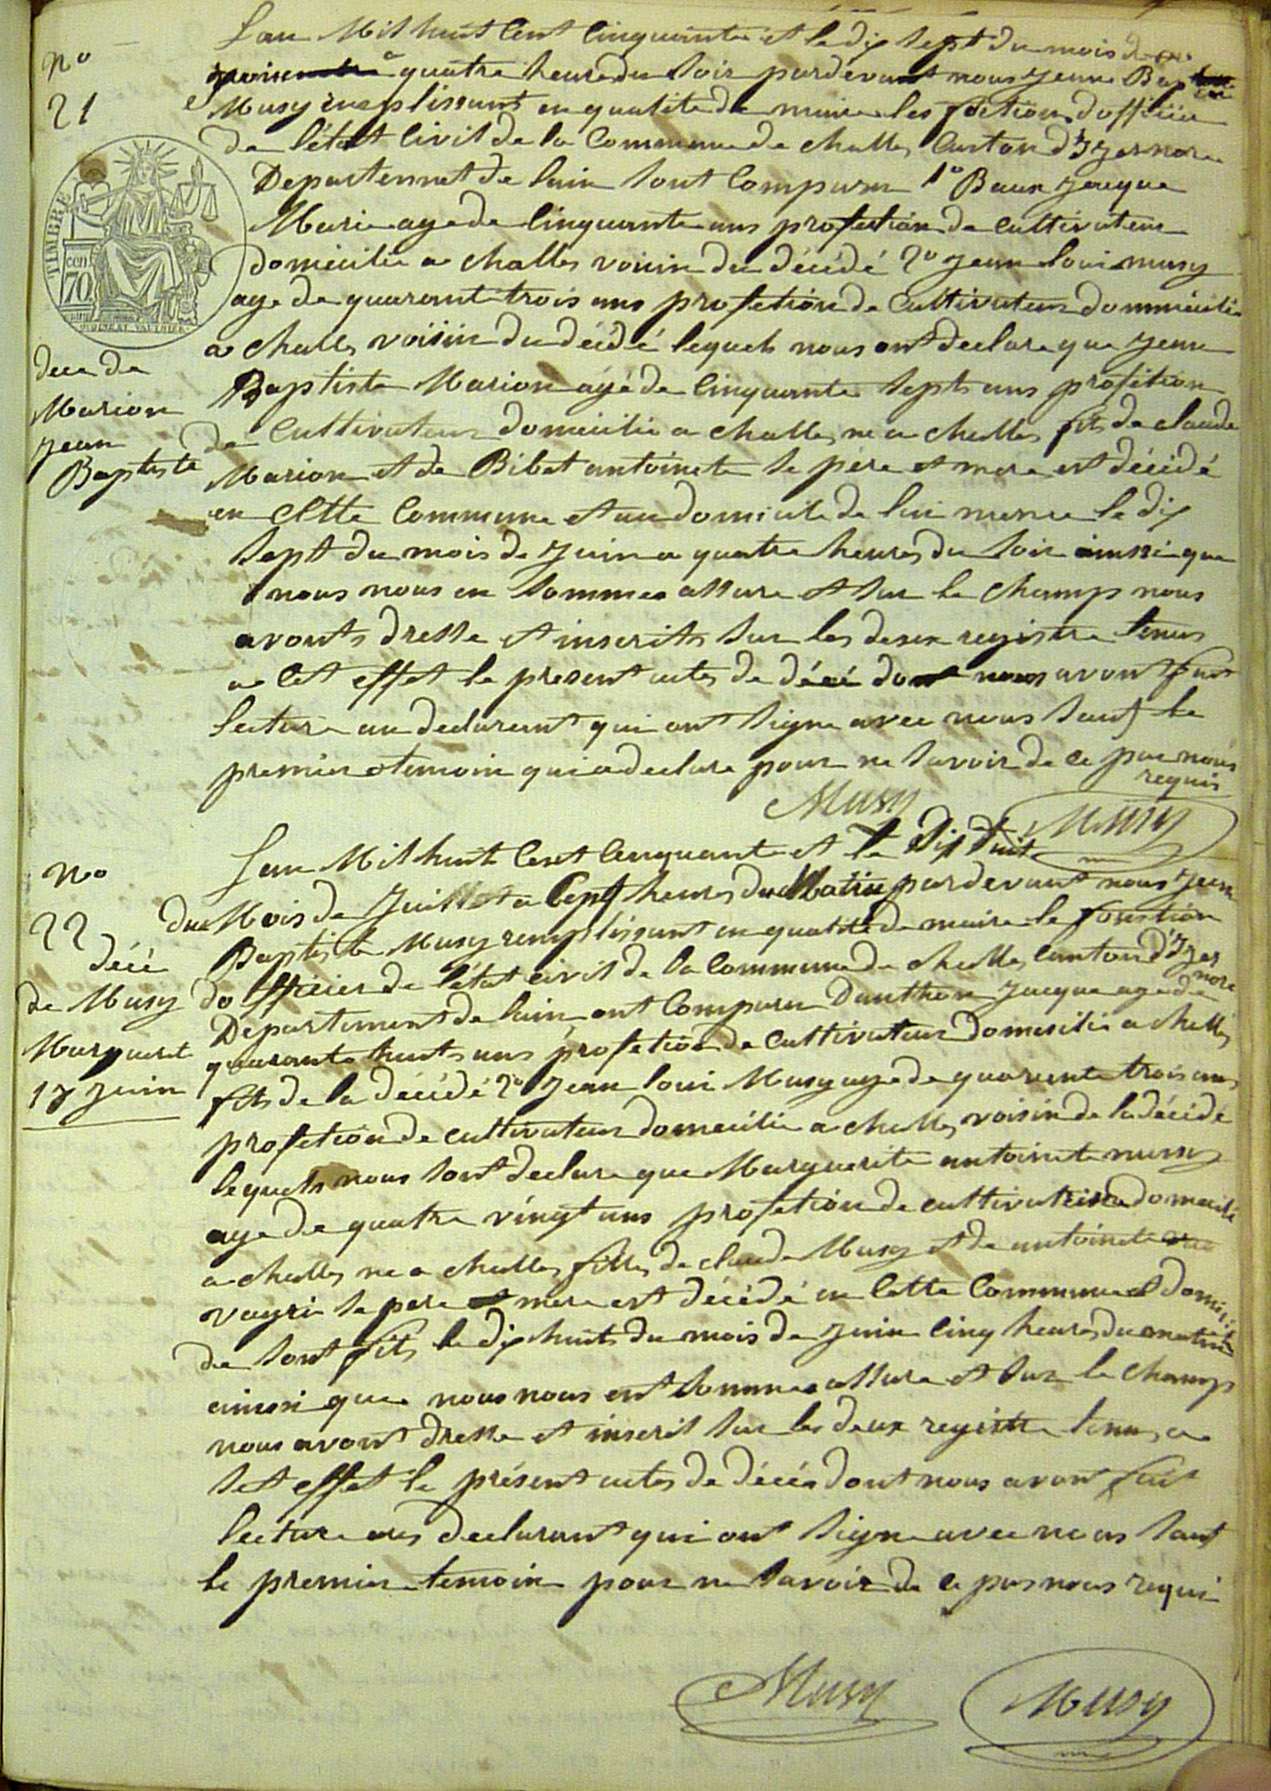 No
21
TIMBRE
cen
70
decé de
Marion
jean
Baptiste
Lan Mil huit Cent Cinquante et le dix sept du mois de
a quatre heures du Soir pardevant nous jean Bap
Musy remplissant en qualité de maire les fotion dofficier
de létat Civil de la Commune de challes Canton d'Izernore
Departemnet de lain Sont Comparu 1o Baux jacque
Marie age de Cinquante ans profetion de Cultivateur
domicilie a challes voisin du décédé 2o jean loui musy
age de quarant trois ans profetion de Cultivateur dommicilie
a challes voisin du décédé lequels nous ont declare que jean
Baptiste Marion agé de Cinquante Sept ans profetion
de Cultivateur domicilie a challes ne a challes fils de claude
Marion et de Bibet antoinete Se père et mere est décédé
en Cette Commune et au domicile de lui meme le dix
Sept du mois de juin a quatre heures du Soir ainssi que
nous nous en Sommes assure et Sur le Champ nous
avonts dresse et inscrits Sur les deux registre tenus
a Cet effet le present actes de décé dont nous avont fait
lecture au declarant qui ont Signe avec nous Sauf le
premier temoin qui a declare pour ne Savoir de ce par nous
requis
Musy
Musy
No
22
décé
de Musy
Marguerit
18 juin
Lan Mil huit Cent Cinquante et le Dix huit
du Mois de Juillet a Sept heures du Matin pardevant nous jean
Baptiste Musy remplissant en qualité de maire le fonction
do fficier de létat civil de la Commune de challes canton d'Izer
nore
Departement de lain ont Comparu Danthon jacque age de
quarante huit ans profetion de Cultivateur Domicilie a challes
fils de la décédé 2o jean loui Musy age de quarente trois ans
profetion de cultivateur domicilie a challes voisin de la décédé
lequels nous Sont declare que Marguerite antoinete musy
age de quatre vingt ans profetion de cultivatrice domicile
a challes ne a challes filles de claude Musy et de antoinete
vayri Se pere et mere est décédé en Cette Commune domicile
de Sont fils le dix huit du mois de juin Cinq heures du matin
ainssi que nous nous ent Somme assure et Sur le Champ
nous avont dresse et inscrit Sur les deux registre tenu a
Set effet le présent actes de décés dont nous avont fait
lecture aus declarant qui ont Signe avec nous Sauf
le premier temoin pour ne Savoir de ce par nous requi
Musy
Musy